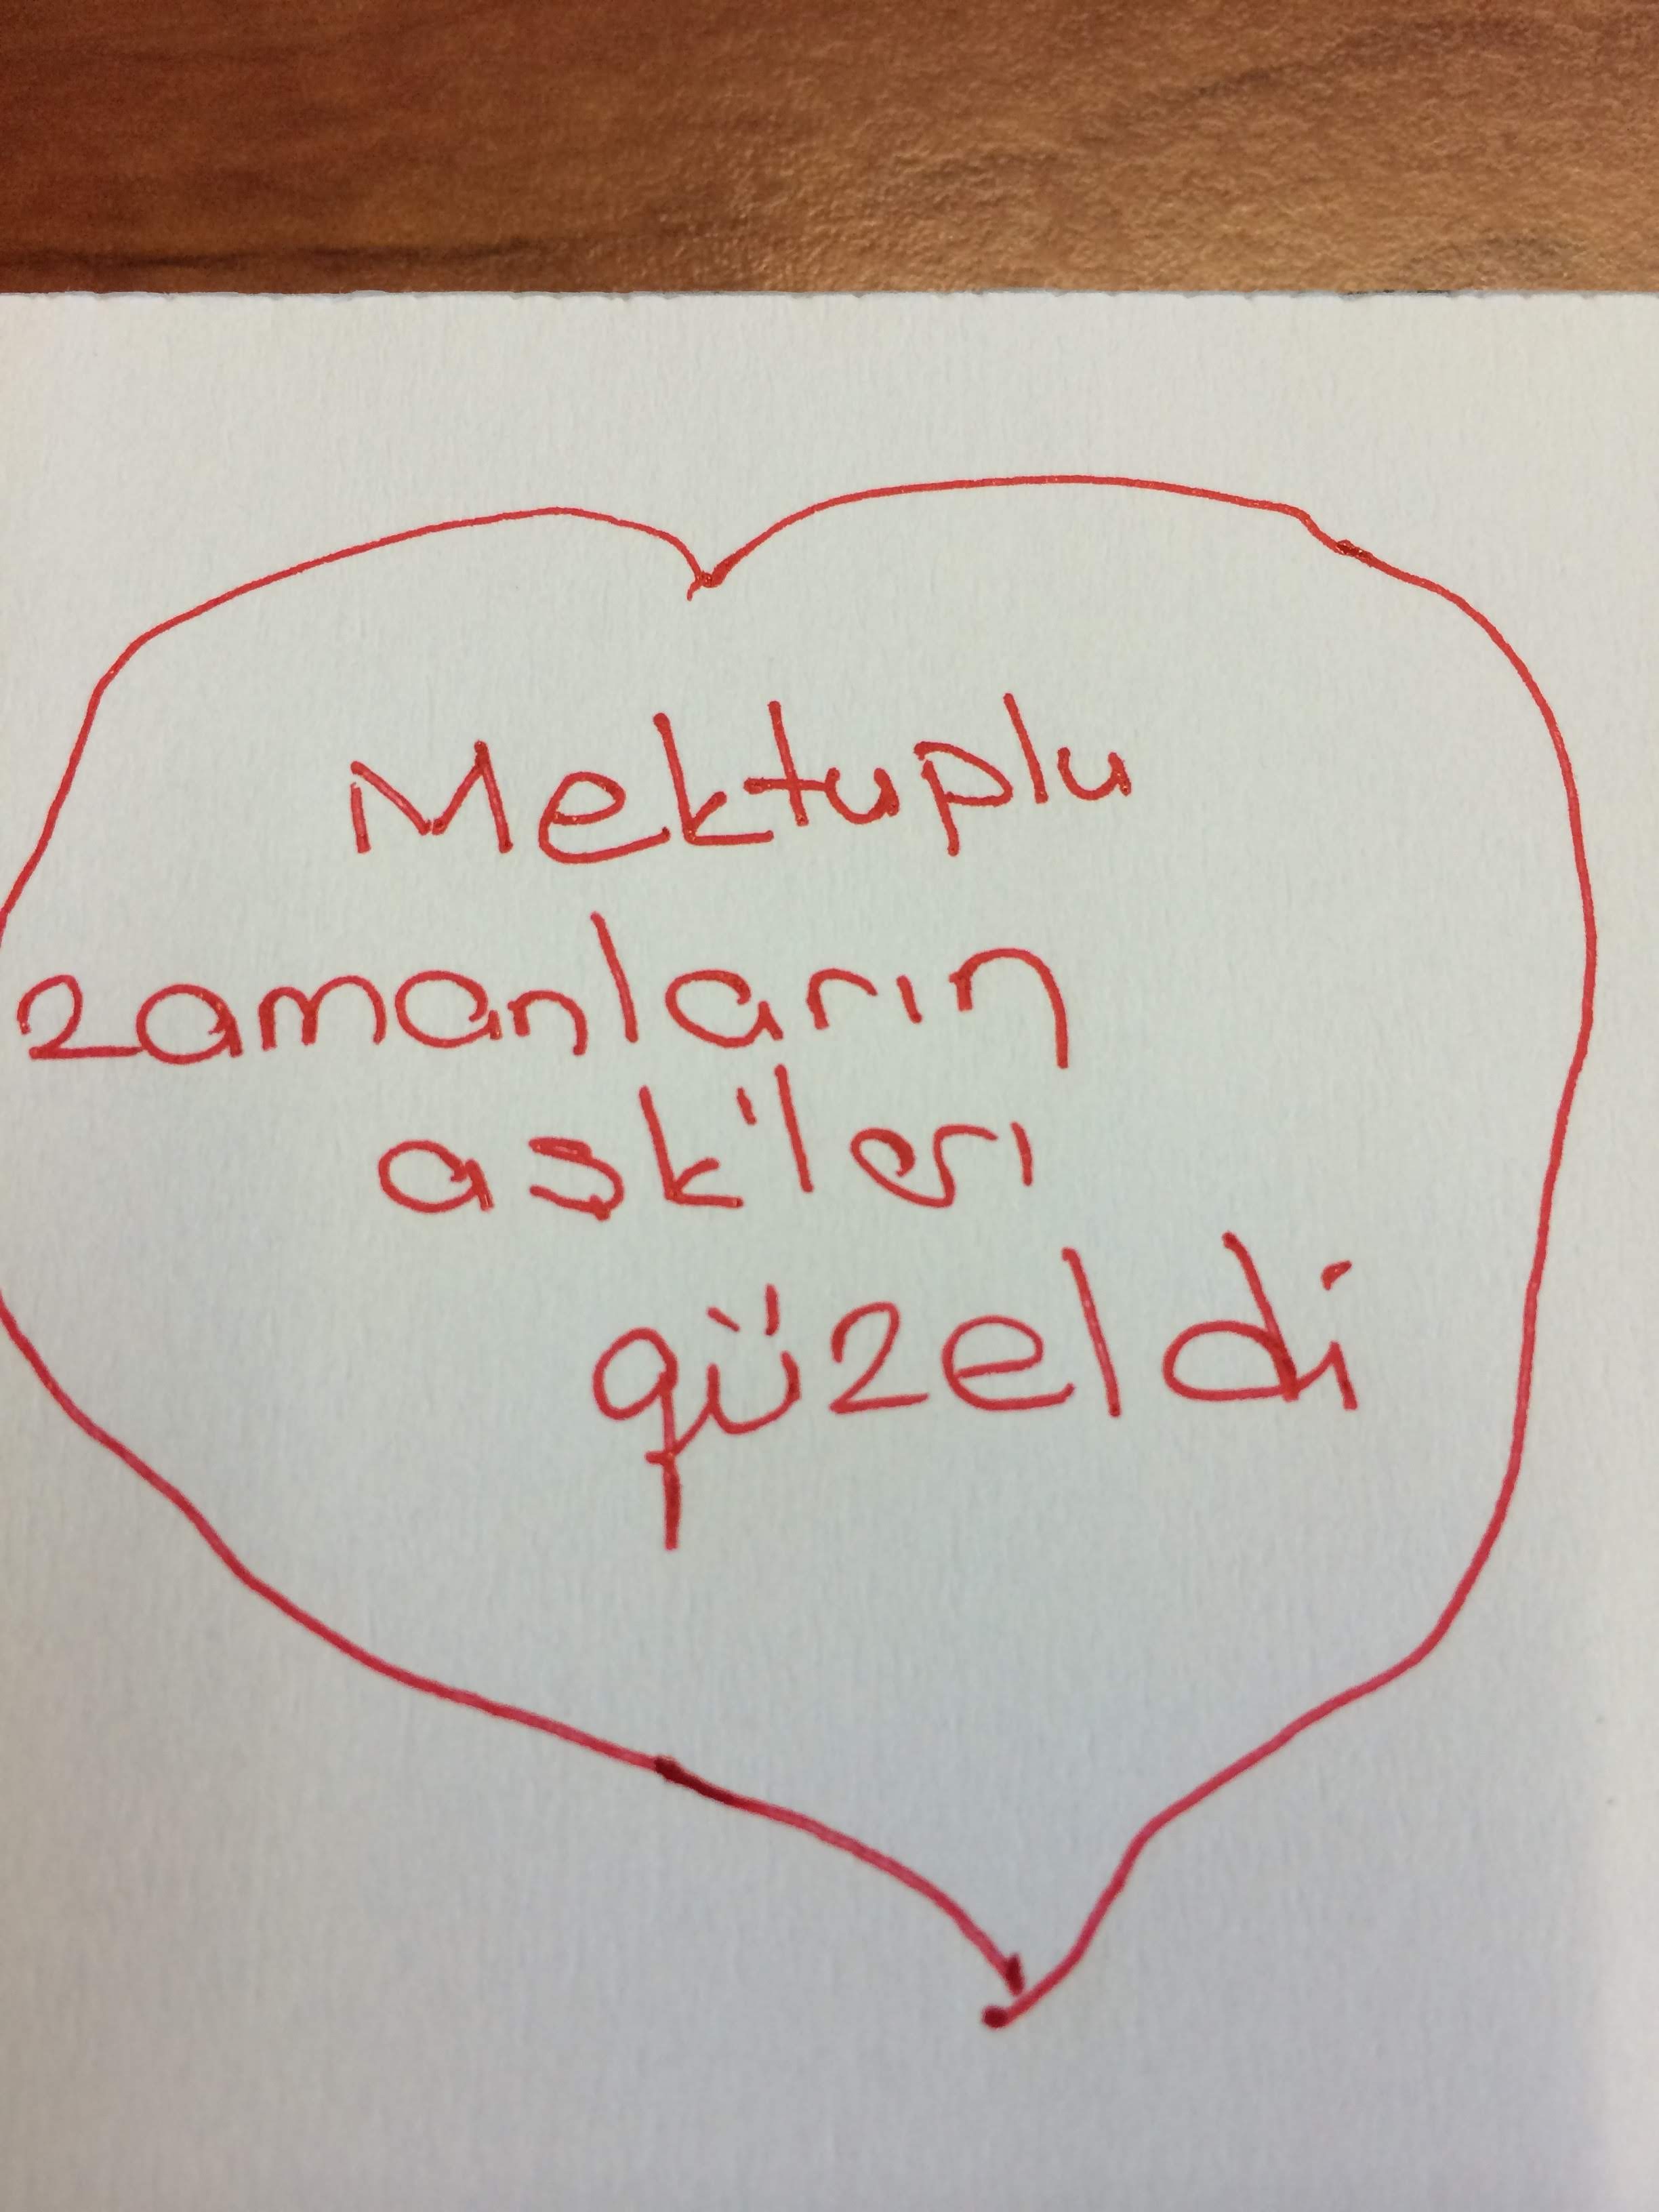 Mektuplu
zamanların
ask'ları
güzeldi